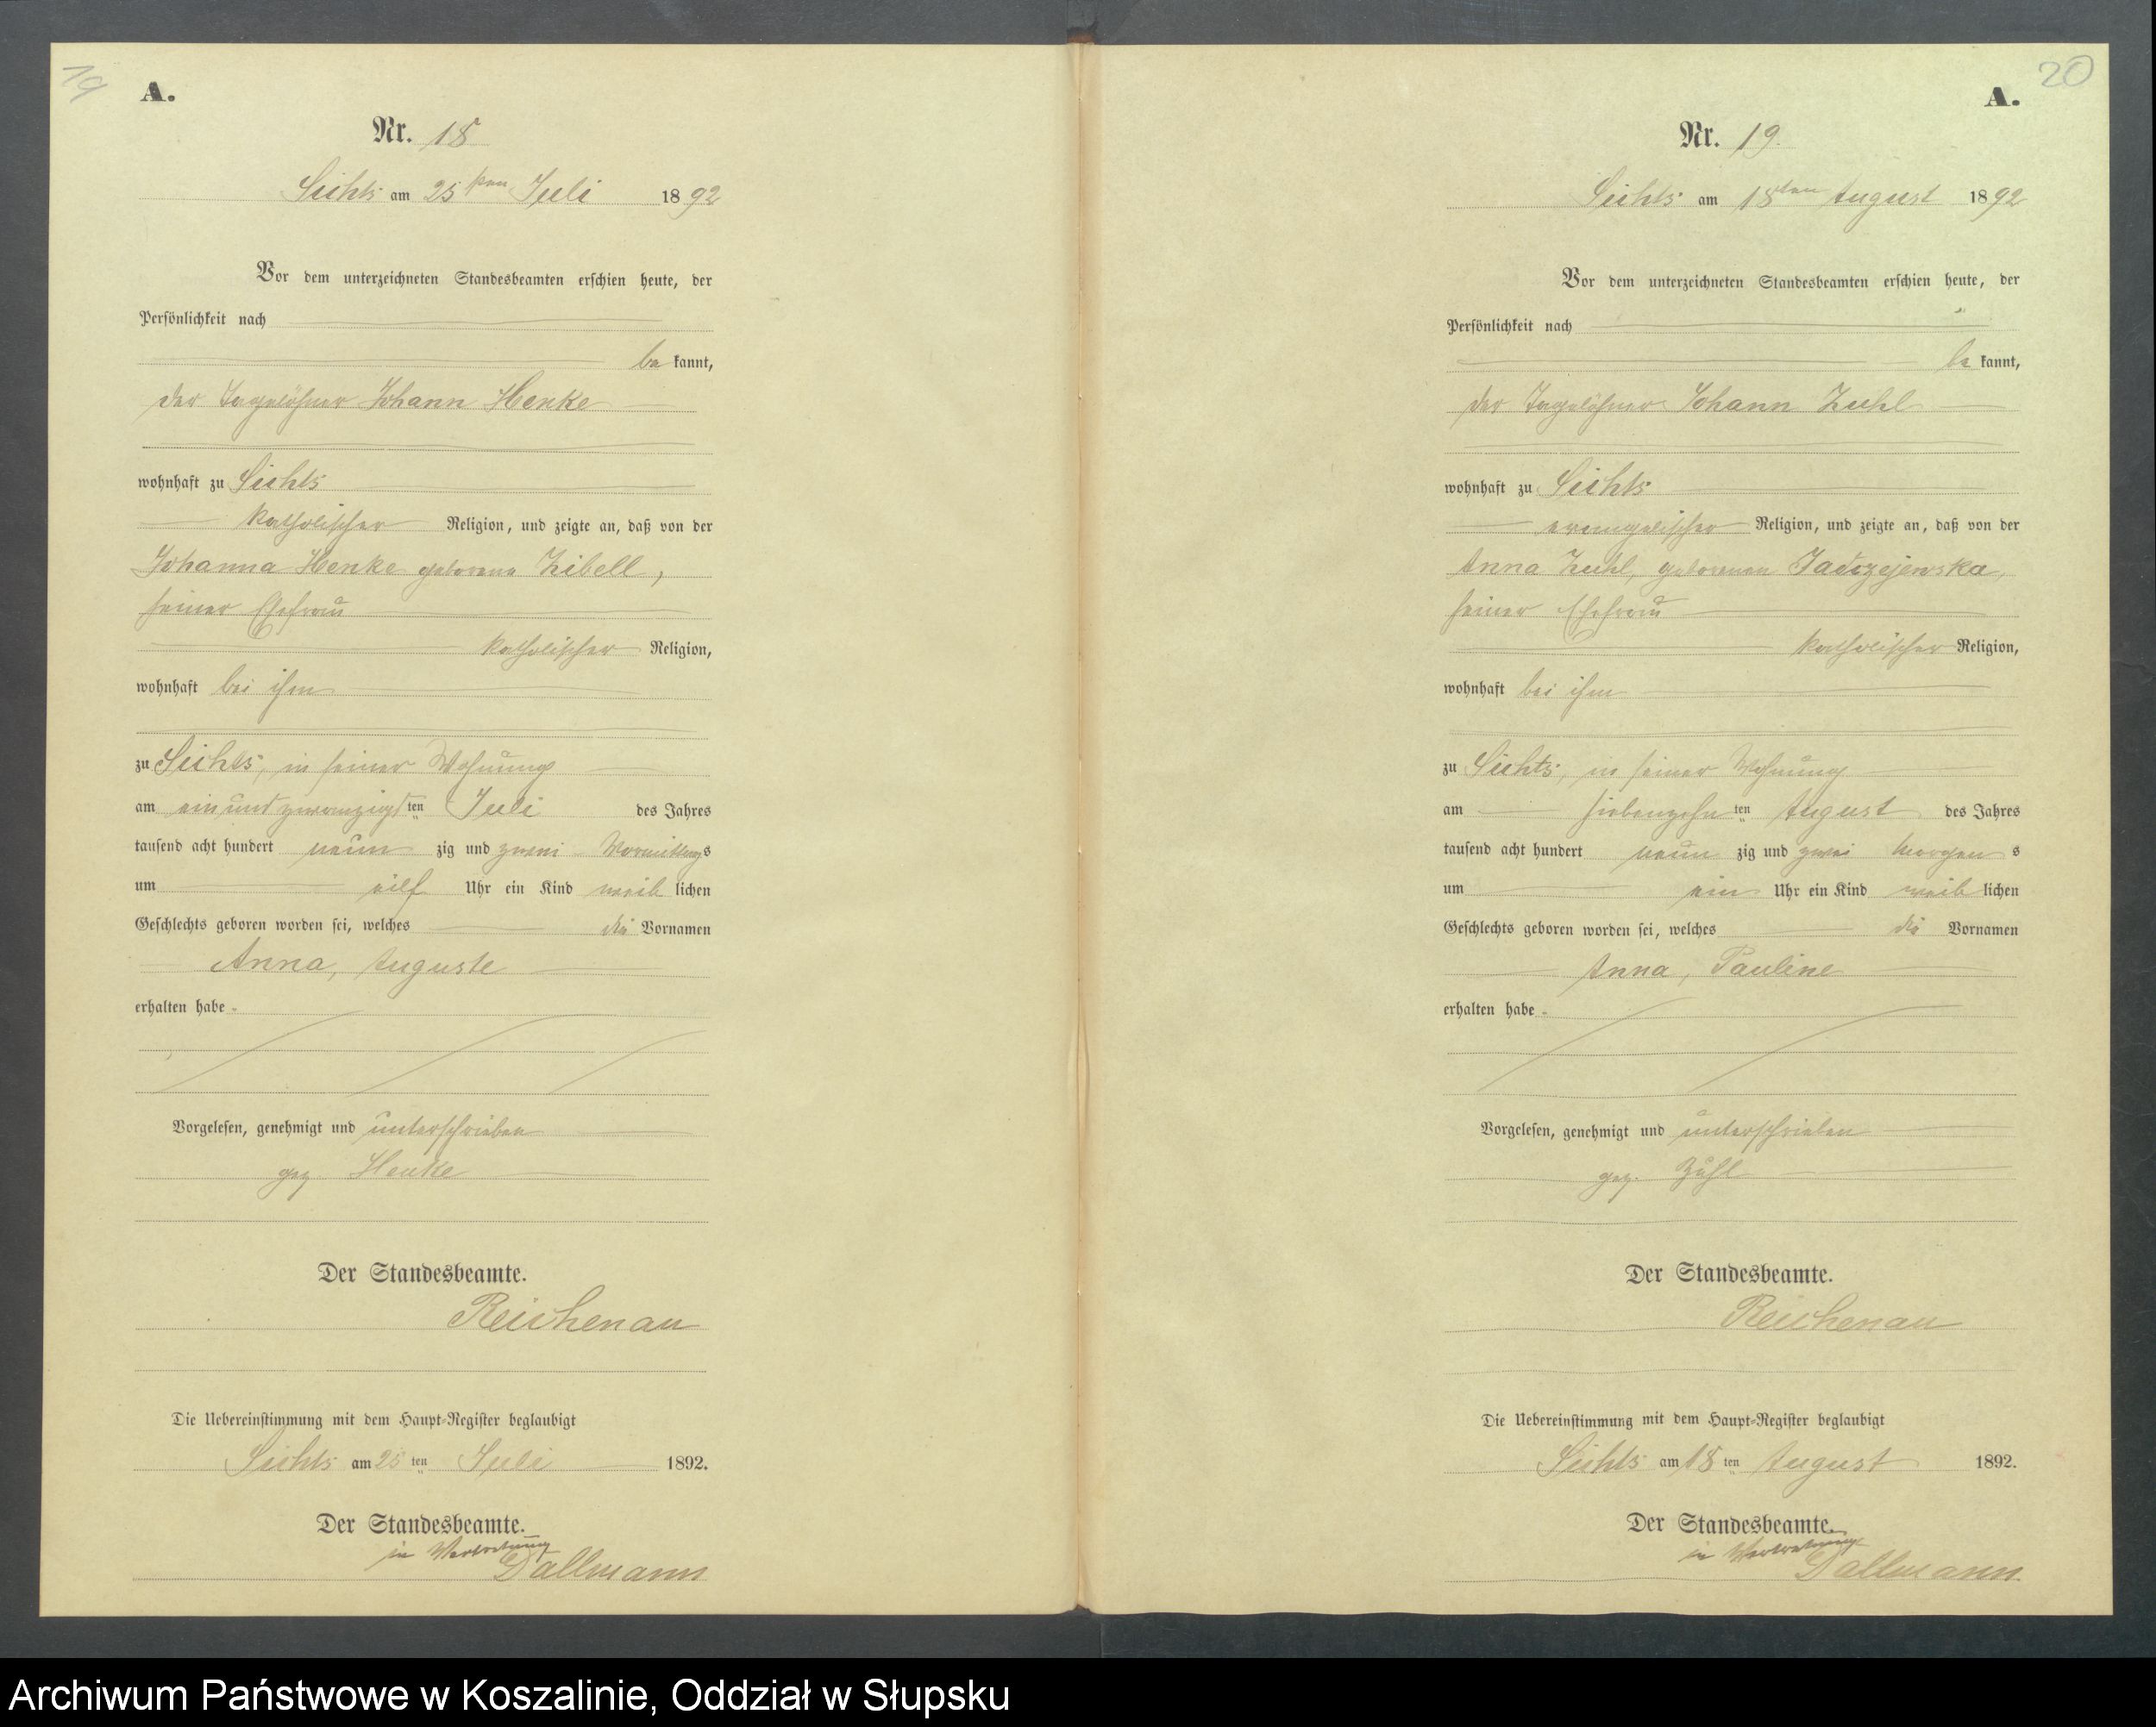 19
A.
Nr. 18
Sichts am 25sten Juli 1892
Vor dem unterzeichneten Standesbeamten erschien heute, der
Persönlichkeit nach
be kannt,
der Tagelöhner Johann Henke
wohnhaft zu Sichts
katholischer Religion, und zeigte an, daß von der
Johanna Henke geborene Zibell,
seiner Ehefrau
katholischer Religion,
wohnhaft bei ihm
zu Sichts, in seiner Wohnung
am ein und zwanzigsten Juli des Jahres
tausend acht hundert neun zig und zwei Vormittags
um eilf Uhr ein Kind weib lichen
Geschlechts geboren worden sei, welches die Vornamen
Anna, Auguste
erhalten habe.
Vorgelesen, genehmigt und unterschrieben
gez. Henke
Der Standesbeamte.
Reichenau
Die Uebereinstimmung mit dem Haupt-Register beglaubigt
Sichts am 25 ten Juli 1892.
Der Standesbeamte.
in Vertretung
Dallmann
20
A.
Nr. 19.
Sichts am 18ten August 1892
Vor dem unterzeichneten Standesbeamten erschien heute, der
Persönlichkeit nach
be kannt,
der Tagelöhner Johann Zuhl
wohnhaft zu Sichts
evangelischer Religion, und zeigte an, daß von der
Anna Zuhl, geborenen
seiner Ehefrau
katholischer Religion,
wohnhaft bei ihm
zu Sichts, in seiner Wohnung
am siebenzehn ten August des Jahres
tausend acht hundert neun zig und zwei Morgen s
um ein Uhr ein Kind weib lichen
Geschlechts geboren worden sei, welches die Vornamen
Anna, Pauline
erhalten habe.
Vorgelesen, genehmigt und unterschrieben
gez. Zuhl
Der Standesbeamte.
Reichenau
Die Uebereinstimmung mit dem Haupt-Register beglaubigt
Sichts am 18 ten August 1892.
Der Standesbeamte.
in Vertretung
Dallmann
Archiwum Państwowe w Koszalinie, Oddział w Słupsku